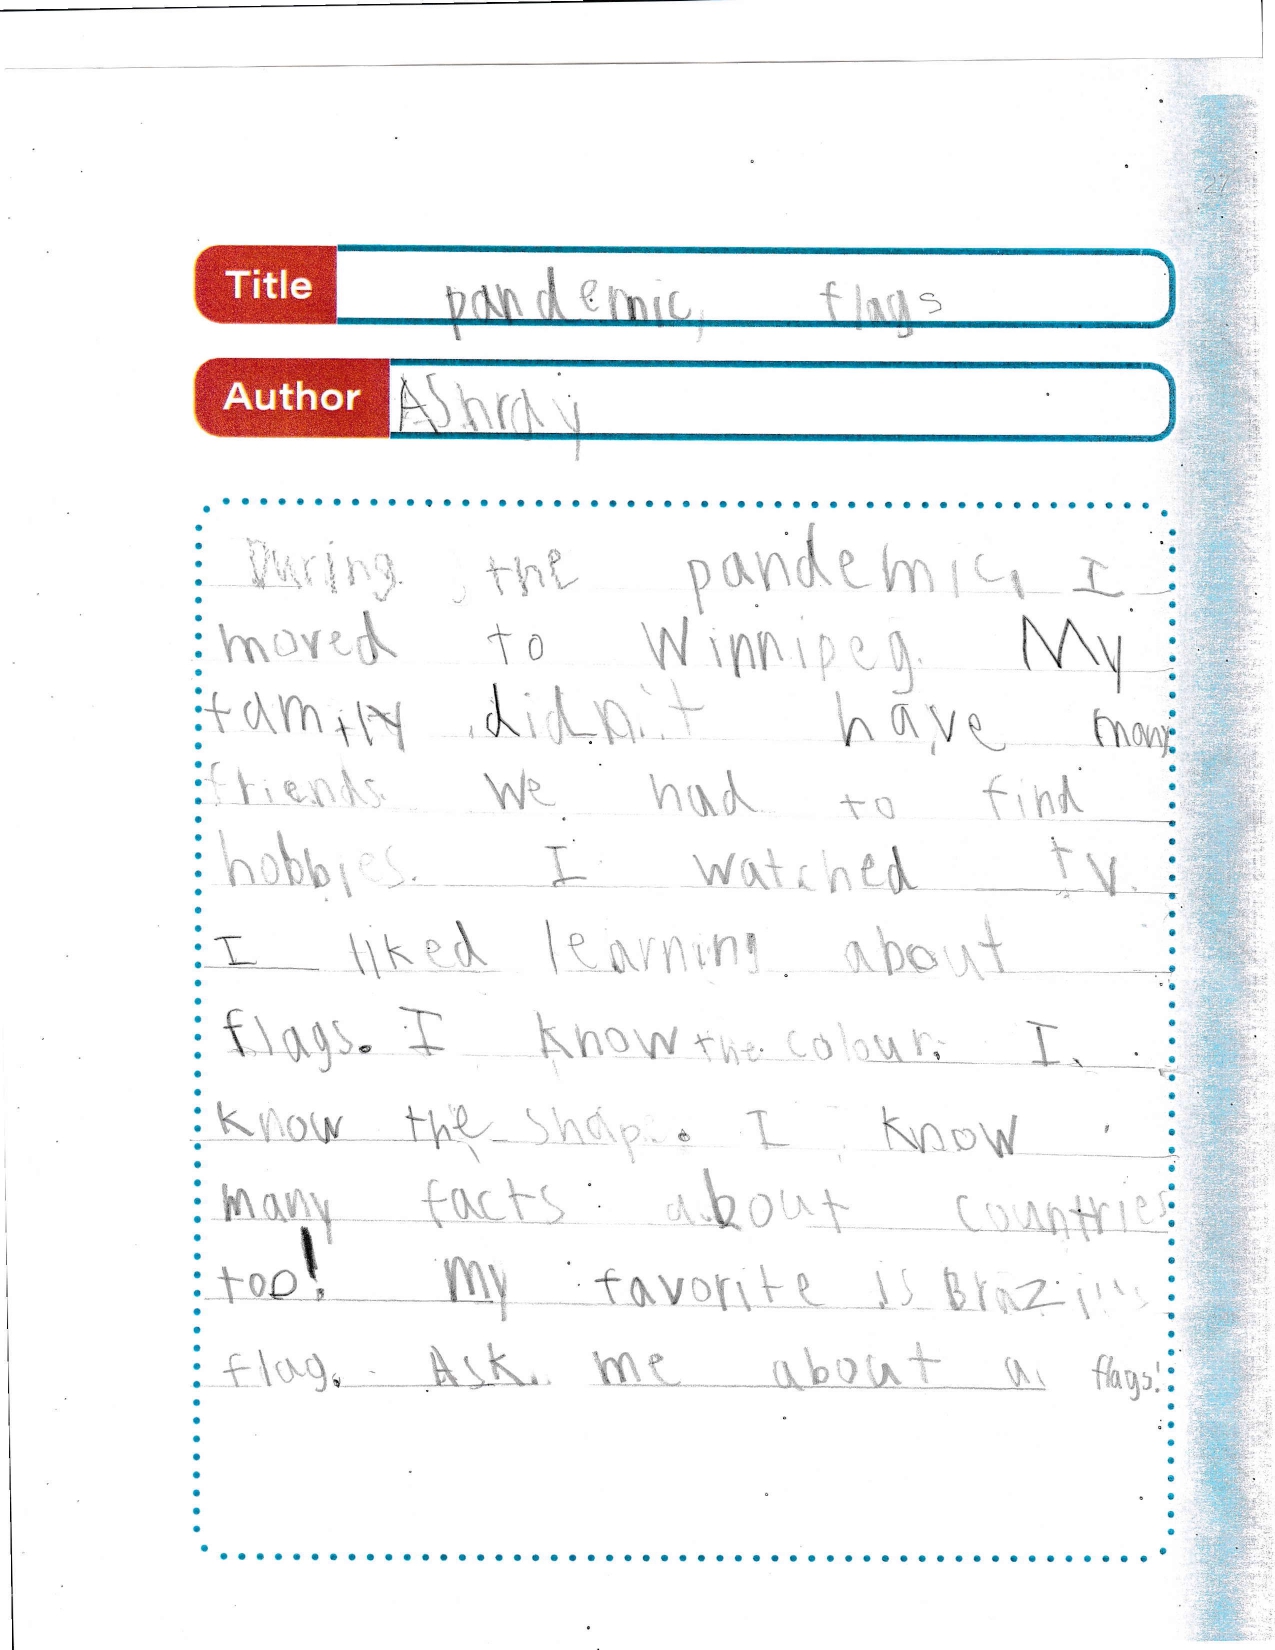 27
Title pandemic, flags
Author AShray
During the pandemic, I
moved to Winnipeg. My
family didn't have many
friends. We had to find
hobbies. I watched tv.
I liked learning about
flags. I know the colour. I
know the shape. I know
many facts about countries
too! My favorite is Brazil's
flag. Ask me about a flags!